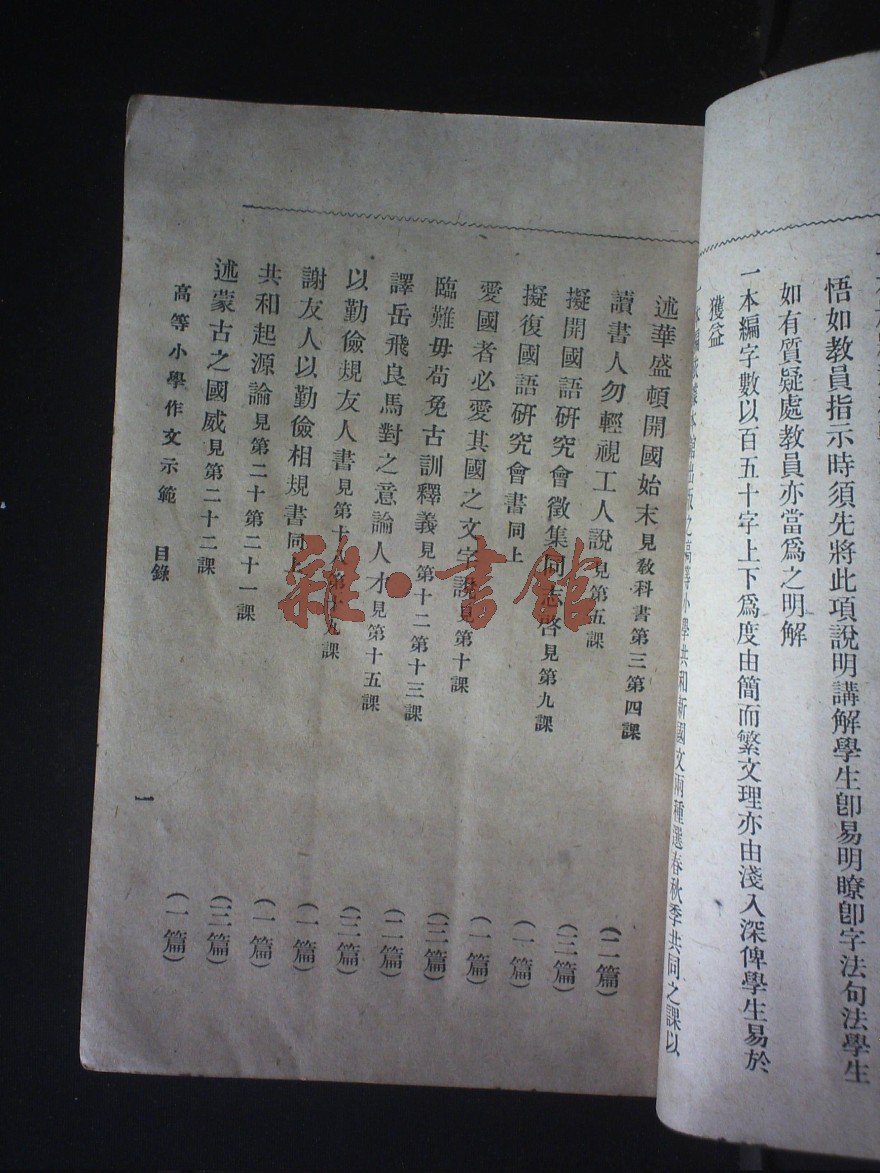 悟如教員指示時須先將此項說明講解學生卽易明瞭卽字法句法學生
如有質疑處教員亦當爲之明解
一本編字數以百五十字上下爲度由簡而繁文理亦由淺入深俾學生易於
獲益
出版之高等小學共和新國文兩種選春秋季共同之課以
述華盛頓開國始末見敎科書第三第四課
讀書人勿輕視工人說見第五課(二篇)
擬開國語研究會徵集同志啓見第九課(三篇)
擬復國語研究會書同上(一篇)
愛國者必愛其國之文字說見第十課(一篇)
臨難毋苟免古訓釋義見第十二第十三課(三篇)
譯岳飛良馬對之意論人才見第十五課(二篇)
以勤儉規友人書見第十八第十九課(三篇)
謝友人以勤儉相規書同上(一篇)
共和起源論見第二十第二十一課(一篇)
述蒙古之國威見第二十二課(三篇)
高等小學作文示範 目錄
一
雜·書館